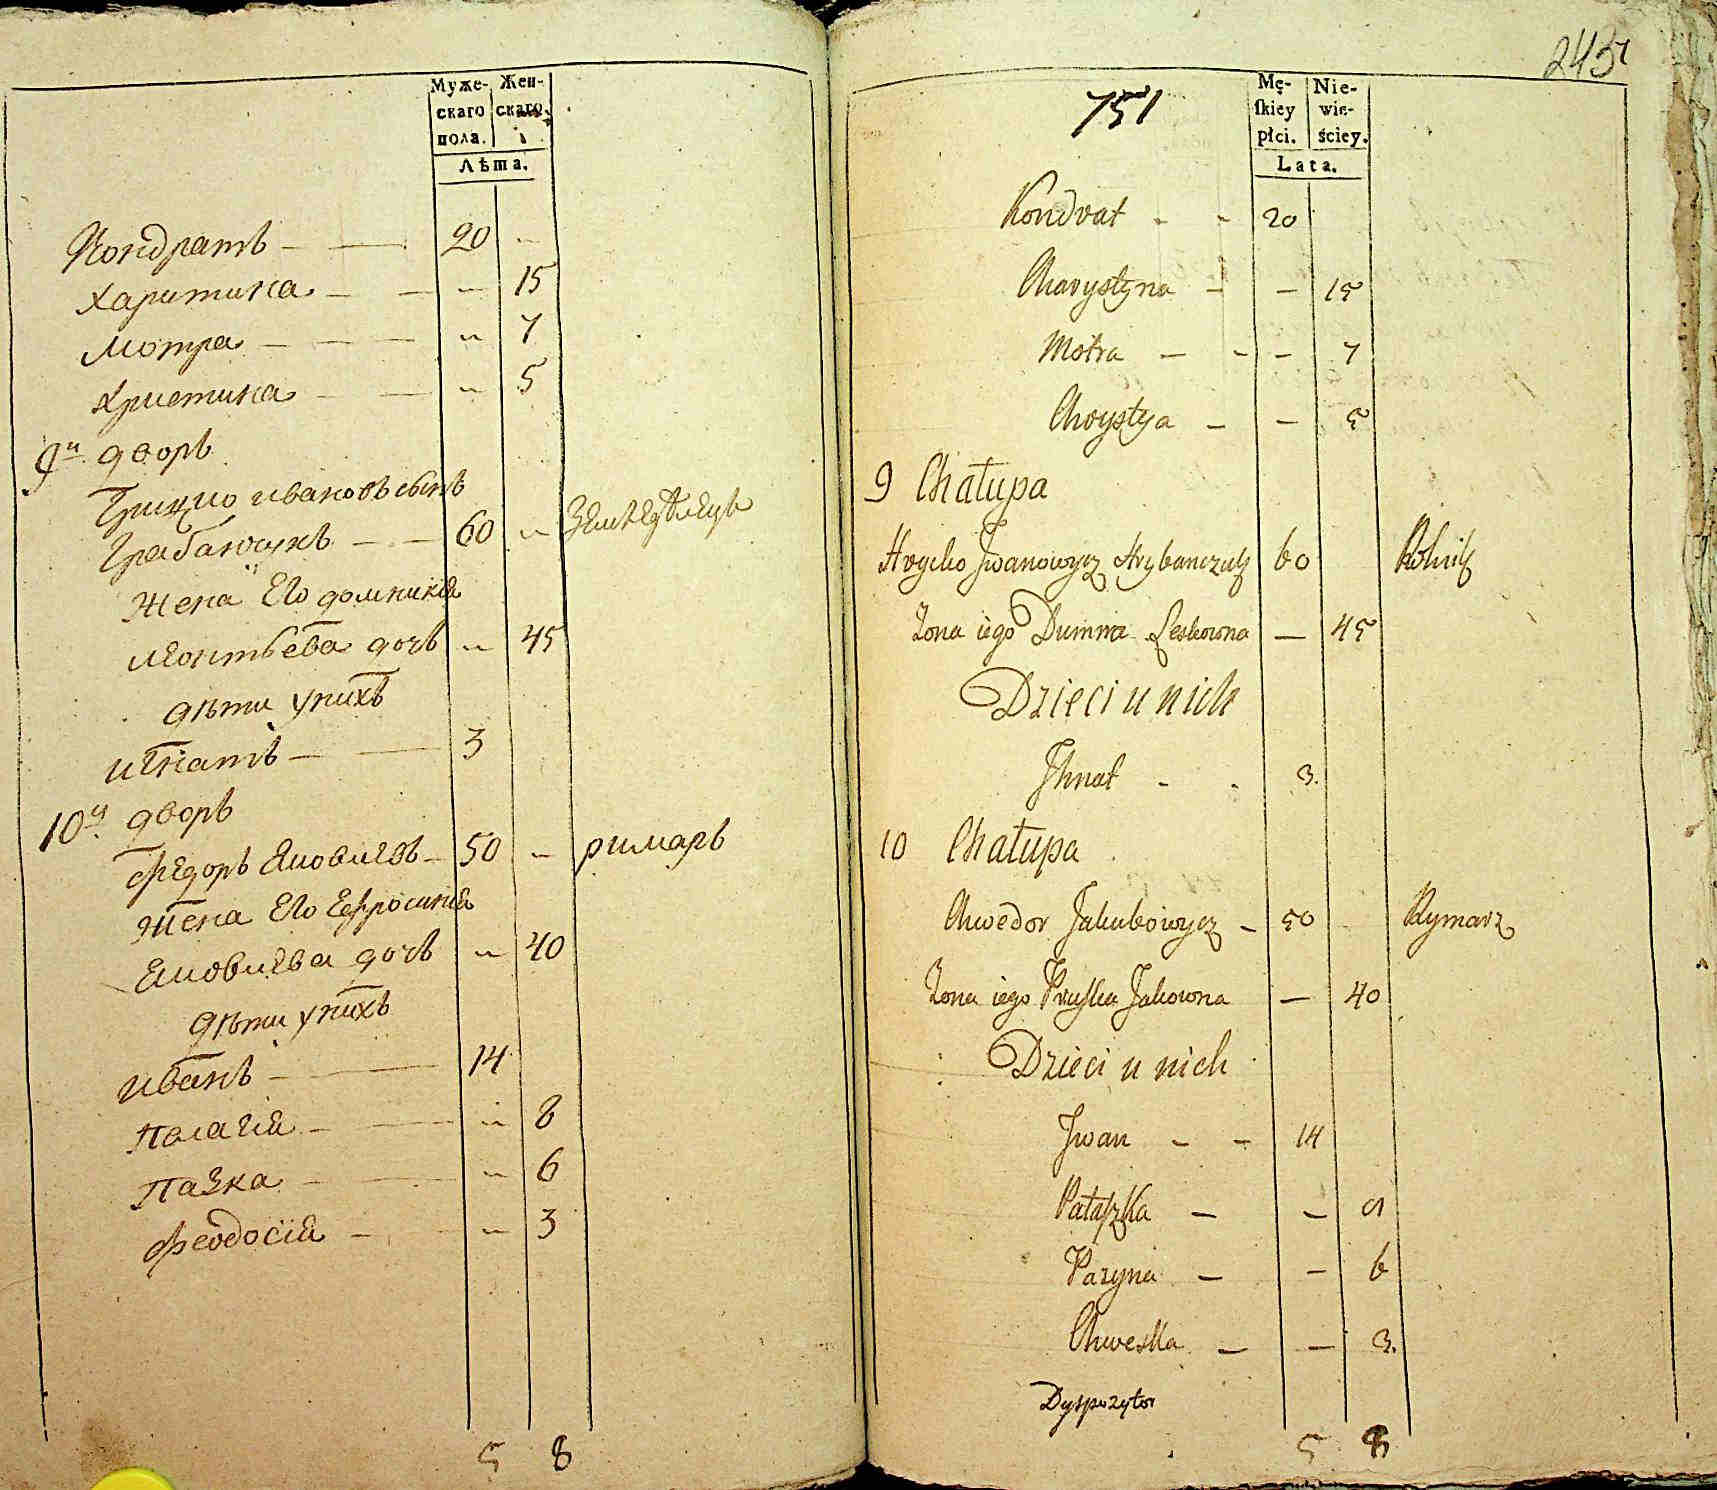 Муже-
скаго
пола.
Жен-
скаго.
Лѣта.
Кондратъ — — 20 „
Харитина — — „ 15
Мотра — — — „ 7
Христина — — „ 5
9й дворъ
Грицко Ивановъ сынъ
Грабанчукъ — — 60 „ Земледѣлецъ
Жена Его домникия
леонтьева дочь „ 45
дѣти унихъ
игнатъ — — 3
10й дворъ
Федоръ Яковлевъ — 50 „ римарь
Жена Его Ефросиния
Яковлева дочь „ 40
Дѣти унихъ
иванъ — — 14
Палагія — — „ 8
Пазка — — „ 6
Феодосія — — „ 3
5 8
243
751
Mę-
skiey
płci.
Nie-
wie-
ściey.
Lata.
Kondrat - - 20
Charystyna - - 15
Motra — - - 7
Chrystya — — 5
9 Chałupa
Hrycko Jwanowycz Hrybanczuk 60 Rolnik
Żona iego Dumna Leskowna — 45
Dzieci u nich
Jhnat - - 3.
10 Chałupa
Chwedor Jakubowycz — 50 Rymarz
Żona iego Pruska Jakowna — 40
Dzieci u nich
Jwan - - 14
Pałaszka — — 8
Pazyna — — 6
Chweska — — 3.
Dyspozytor
5 8